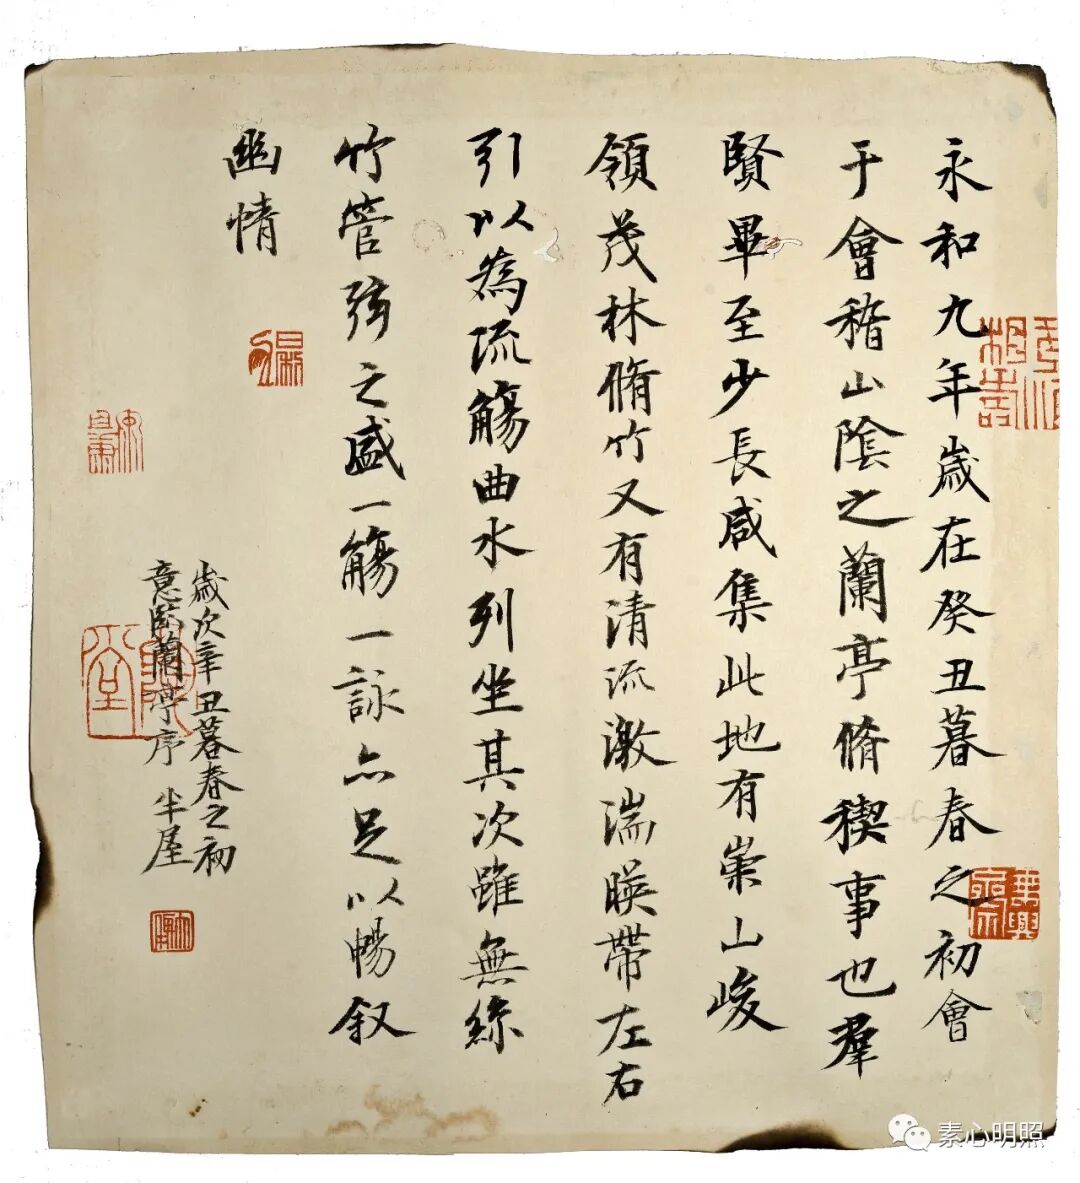 永和九年歲在癸丑暮春之初會
于會稽山陰之蘭亭脩稧事也羣
賢畢至少長咸集此地有崇山峻
領茂林脩竹又有清流激湍暎帶左右
引以為流觴曲水列坐其次雖無絲
竹管弦之盛一觴一詠亦足以暢叙
幽情
歲次辛丑暮春之初
意臨蘭亭序 半屋
素心明照